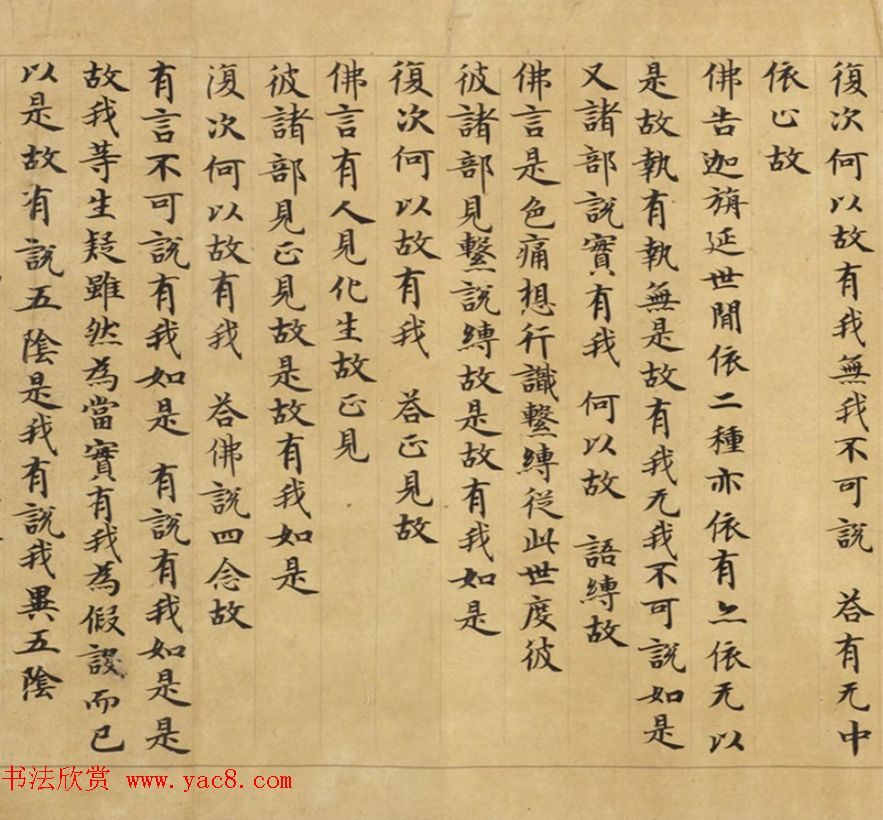 復次何以故有我無我不可說　荅有无中
依心故
佛告迦旃延世間依二種亦依有亦依无以
是故執有執無是故有我无我不可說如是
又諸部說實有我　何以故　語縛故
佛言是色痛想行識繫縛從此世度彼
彼諸部見繫說縛故是故有我如是
復次何以故有我　荅正見故
佛言有人見化生故正見
彼諸部見正見故是故有我如是
復次何以故有我　荅佛說四念故
有言不可說有我如是　有說有我如是是
故我等生疑雖然為當實有我為假設而已
以是故有說五陰是我有說我異五陰
书法欣赏 www.yac8.com